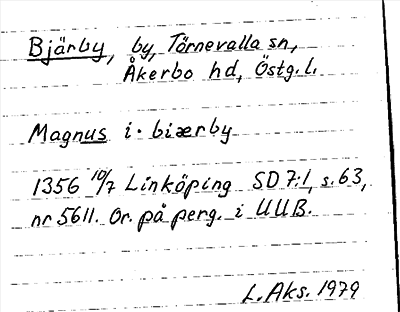 Bjärby, by, Törnevalla sn,
Åkerbo hd, Östg.l.
Magnus i · biærby
1356 10/7 Linköping SD 7:1, s. 63,
nr 5611. Or. på perg. i UUB.
L. Aks. 1979